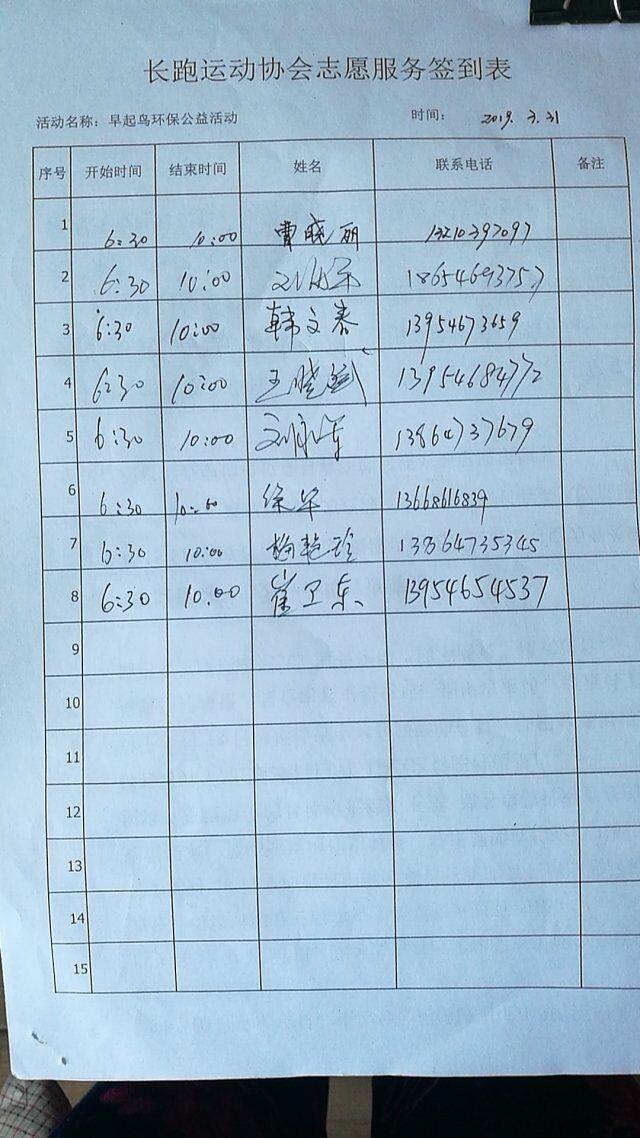 长跑运动协会志愿服务签到表
活动名称：早起鸟环保公益活动 时间： 2019.3.31
序号 开始时间 结束时间 姓名 联系电话 备注
1 6:30 10:00 曹晓丽 13210397097
2 6:30 10:00 18654693757
3 6:30 10:00 韩文春 13954673659
4 6:30 10:00 王晓斌 13954684772
5 6:30 10:00 刘永军 13864737679
6 6:30 10:00 徐华 13668616839
7 6:30 10:00 梅艳玲 13864735345
8 6:30 10:00 崔卫东 13954654537
9
10
11
12
13
14
15